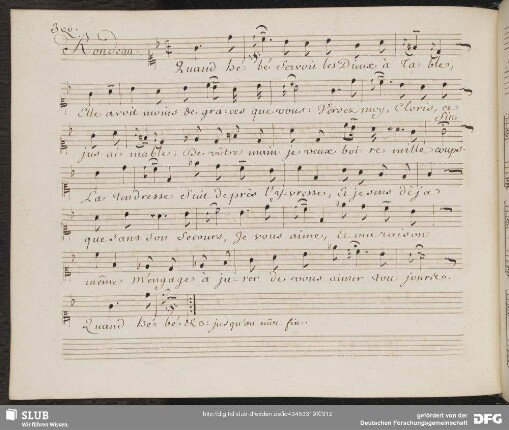 300.
Rondeau
Quand he bé servoit les Dieux à Table,
Elle avoit moins de graces que vous: Versez moy, Cloris, ce
Fin
jus ai mable; De vôtre main je veux boi re mille coups
La tendresse Suit de près l'yvresse, Si je sens déja
que sans son Secours, Je vous aime, Et ma raison
même M'engage à ju rer de vous aimer tou jours.
Quand Hé bé jusqu'au fin
SLUB
Wir führen Wissen.
http://digital.slub-dresden.de/id434593319X/312
gefördert von der
Deutschen Forschungsgemeinschaft
DFG